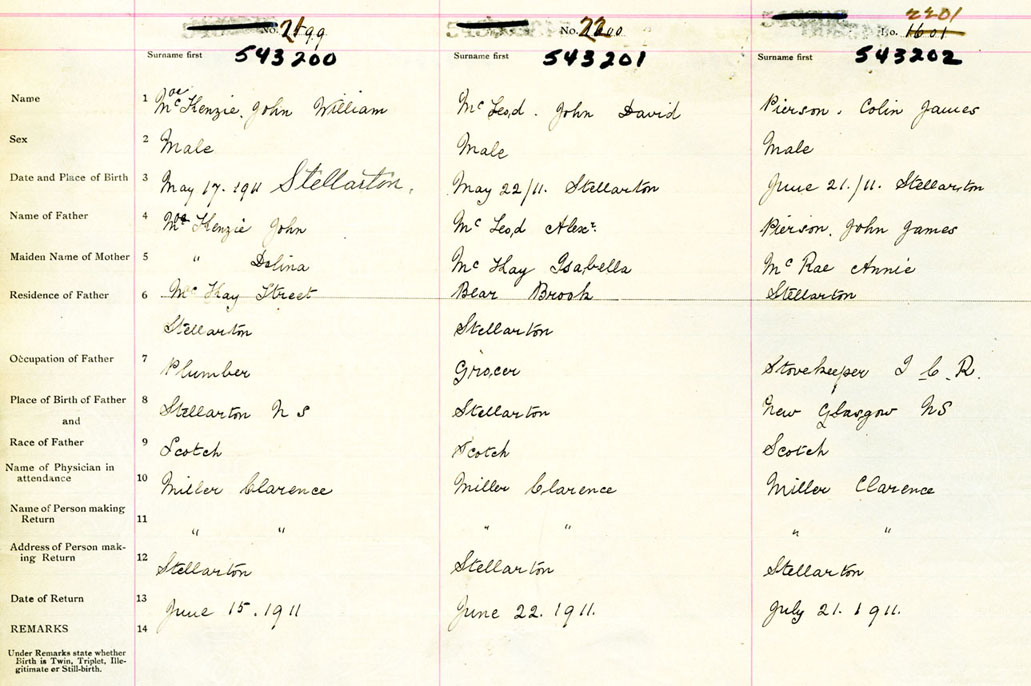 No. 2199
No. 2200
No. 2201
1601
Surname first 543200
Surname first 543201
Surname first 543202
Name 1 McKenzie, John William
McLeod. John David
Pierson, Colin James
Sex 2 Male
Male
Male
Date and Place of Birth 3 May 17. 1911 Stellarton,
May 22/11. Stellarton
June 21./11. Stellarton
Name of Father 4 McKenzie John
McLeod Alexr.
Pierson, John James
Maiden Name of Mother 5 " Dolina
McKay Isabella
McRae Annie
Residence of Father 6 McKay Street
Bear Brook
Stellarton
Stellarton
Stellarton
Occupation of Father 7 Plumber
Grocer
Storekeeper I C R.
Place of Birth of Father 8 Stellarton N S
Stellarton
New Glasgow NS
and
Race of Father 9 Scotch
Scotch
Scotch
Name of Physician in
attendance 10 Miller Clarence
Miller Clarence
Miller Clarence
Name of Person making
Return 11 " "
" "
" "
Address of Person mak-
ing Return 12 Stellarton
Stellarton
Stellarton
Date of Return 13 June 15. 1911
June 22. 1911.
July 21. 1911.
REMARKS 14
Under Remarks state whether
Birth is Twin, Triplet, Ille-
gitimate or Still-birth.